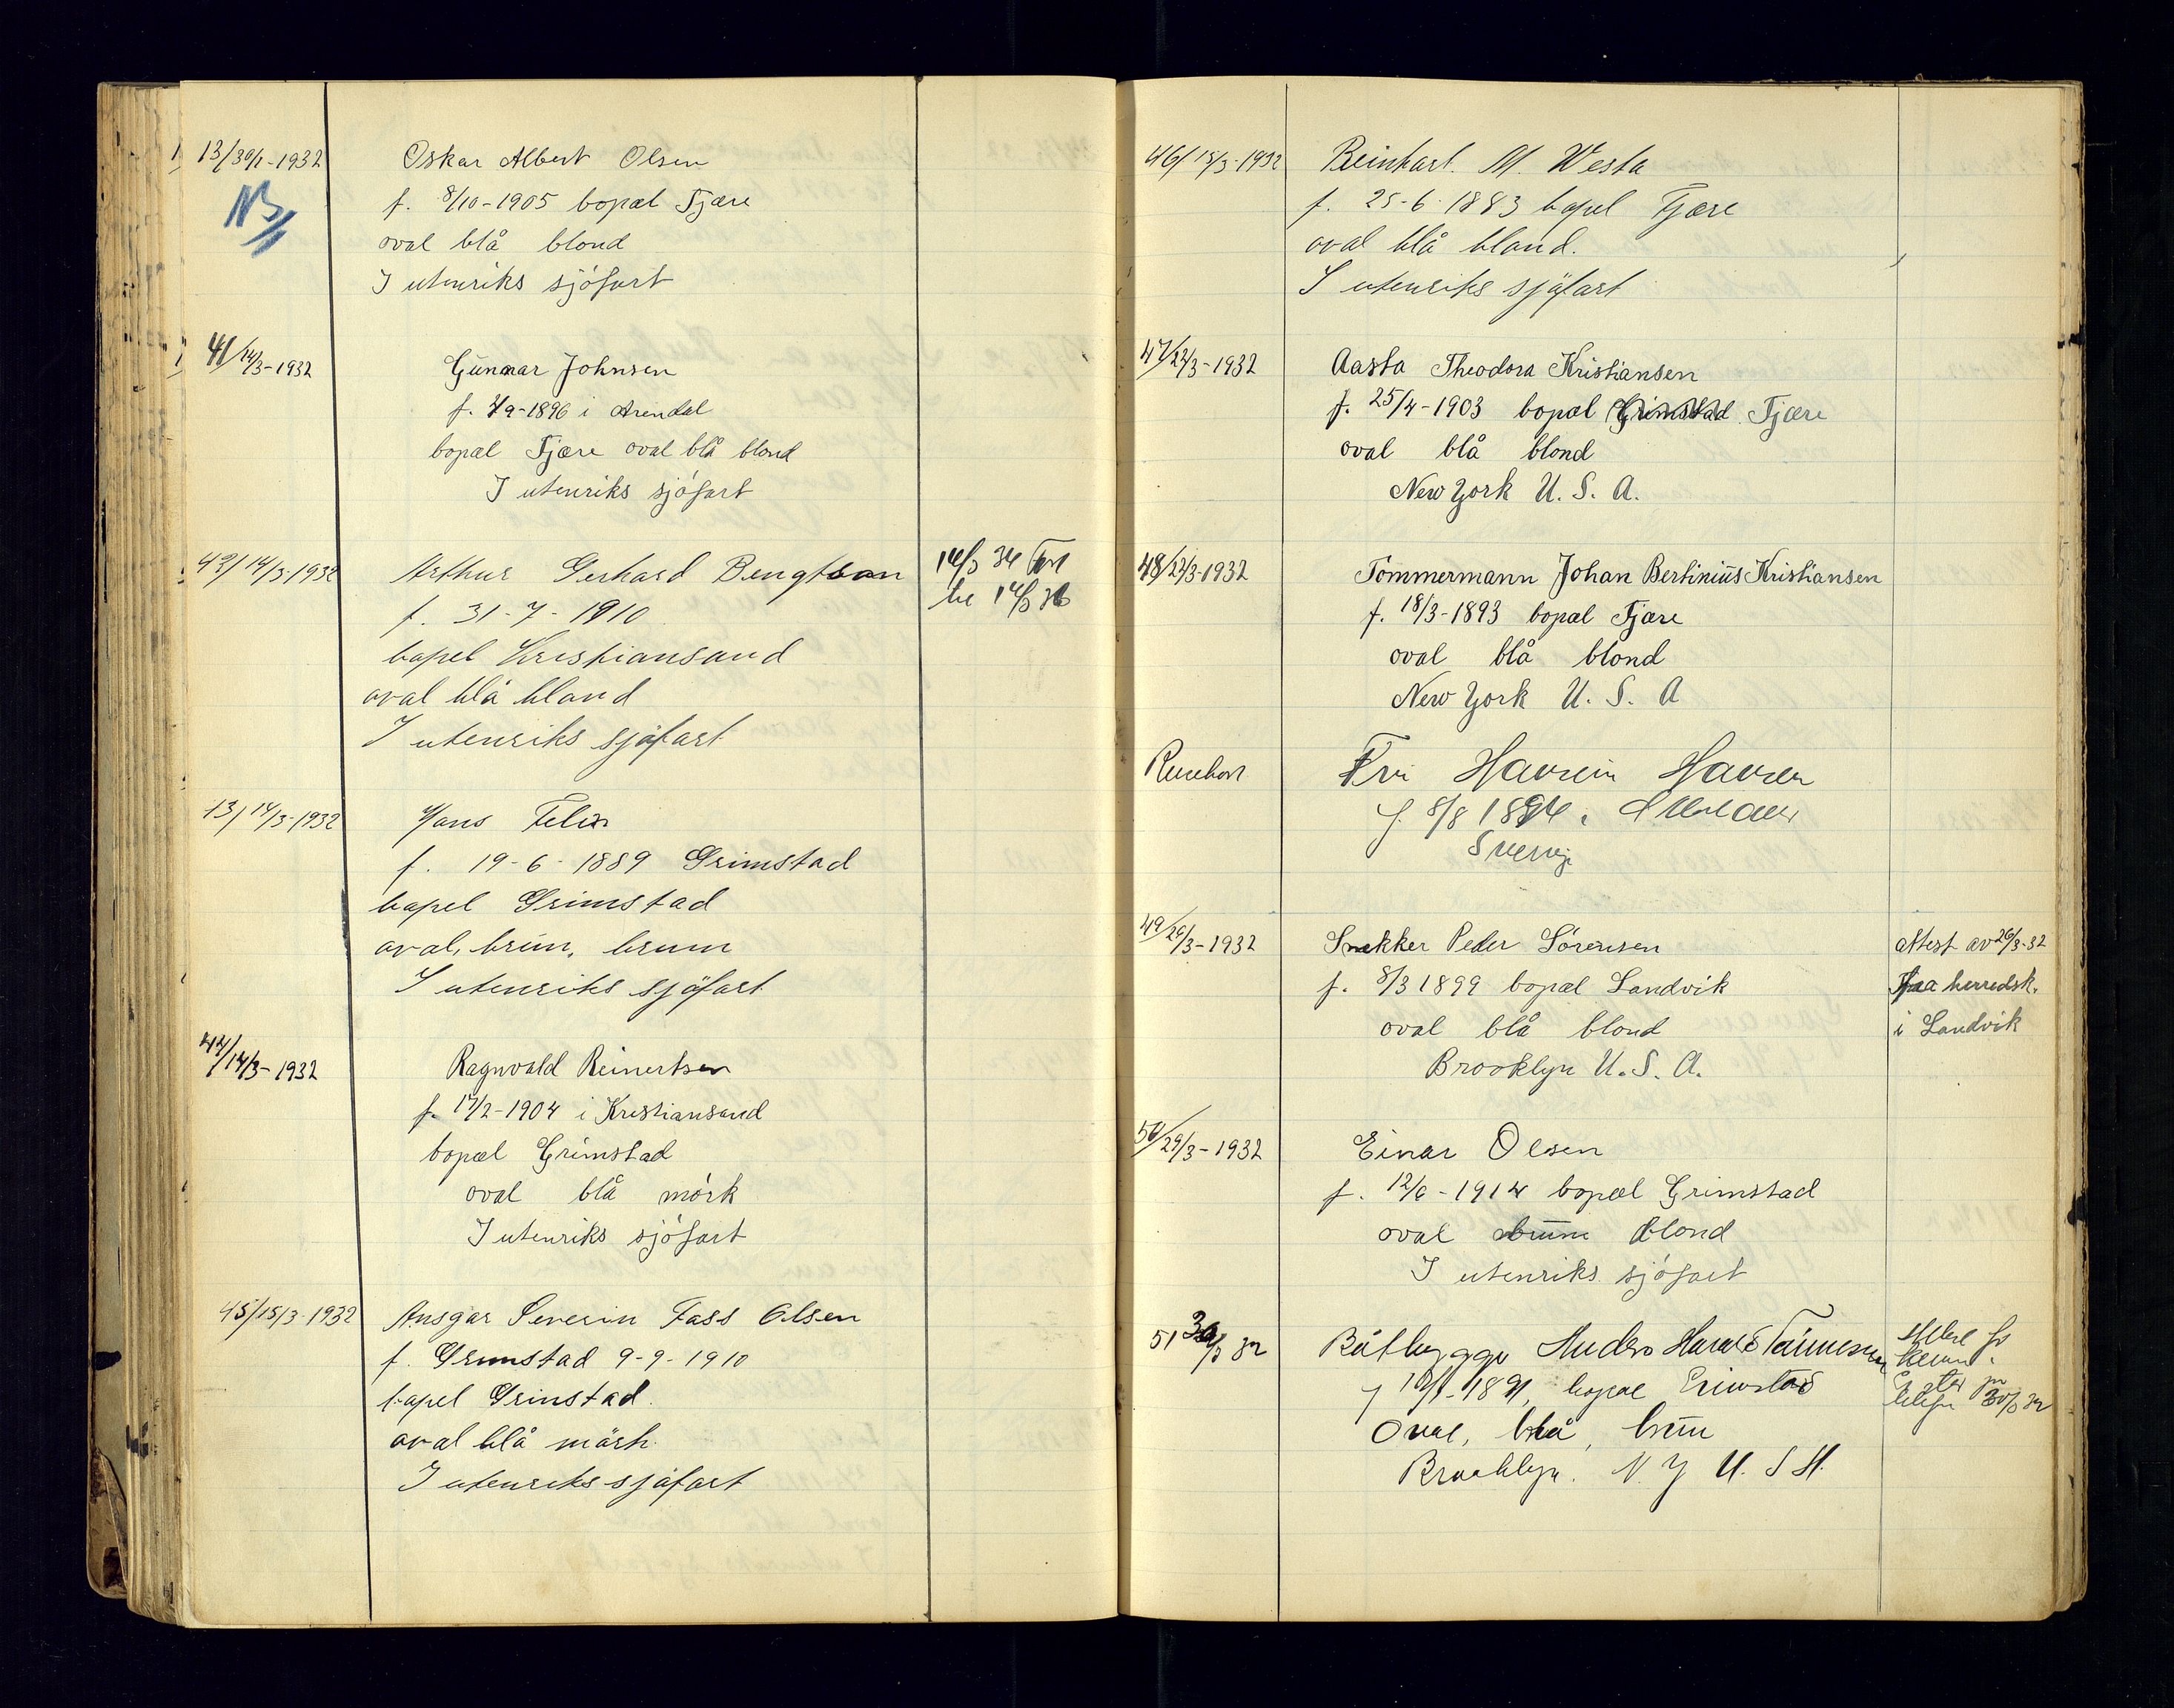 13/30/1-1932
Oskar Albert Olsen
NB
f. 8/10-1905 bopæl Fjære
oval blå blond
I utenriks sjófart
41/14/3-1932
Gunnar Johnsen
f. 7/9-1896 i Arendal
bopæl Fjære oval blå blond
I utenriks sjófart
42/14/3-1932
Arthur Gerhard Bengtson
f. 31-7-1910
bopel Kristiansand
oval blå blond
I utenriks sjøfart
14/3 34
14/3 36
43/14/3-1932
Hans Felix
f. 19-6-1889 Grimstad
bopel Grimstad
oval, brun, brun
I utenriks sjøfart
44/14/3-1932
Ragnvald Reinertsen
f. 17/2-1904 i Kristiansand
bopæl Grimstad
oval blå mørk
I utenriks sjófart
45/15/3-1932
Ansgar Severin Fass Olsen
f. Grimstad 9-9-1910
bopel Grimstad.
oval blå mørk
I utenriks sjøfart
46/15/3-1932
Reinhart. M. Westa
f. 25-6-1883 bopel Fjære
oval blå blond.
I utenriks sjøfart
47/22/3-1932
Aasta Theodora Kristiansen
f. 25/4-1903 bopæl Grimstad Fjære
oval blå blond
New York U. S. A.
48/22/3-1932
Tømmermann Johan Bertinius Kristiansen
f. 18/3-1893 bopæl Fjære
oval blå blond
New York U. S. A
Hansen
f. 8/8 1894 i
Sverige
49/26/3-1932
Snekker Peder Sórensen
f. 8/3 1899 bopæl Landvik
oval blå blond
Brooklyn U. S. A.
Attest av 26/3-32
fra herredsk.
i Landvik
50/29/3-1932
Einar Olsen
f. 12/6-1914 bopæl Grimstad
oval brun blond
I utenriks sjófart
51 30/3 32
Båtbygger Anders Harald Tønnesen
f 10/1-1891, bopæl Grimstad
Oval, blå, brun
Brooklyn. N. Y U. S A.
30/3 32